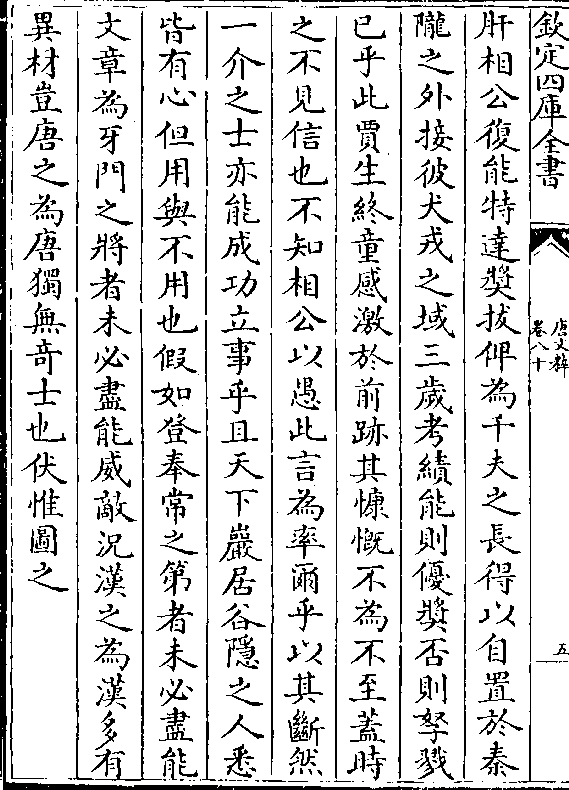 欽定四庫全書
唐文粹
卷八十
五
肝相公復能特達奬拔俾為千夫之長得以自置於秦
隴之外接彼犬戎之域三歲考績能則優奬否則孥戮
已乎此賈生終童感激於前跡其慷慨不為不至蓋時
之不見信也不知相公以愚此言為率爾乎以其斷然
一介之士亦能成功立事乎且天下巖居谷隱之人悉
皆有心但用與不用也假如登奉常之第者未必盡能
文章為牙門之將者未必盡能威敵況漢之為漢多有
異材豈唐之為唐獨無竒士也伏惟圖之